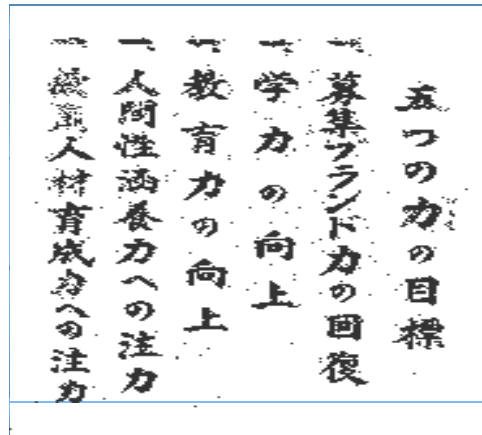 五つの力の目標
一、募集ブランド力の回復
一、学力の向上
一、教育力の向上
一、人間性涵養力への注力
一、人材育成力への注力